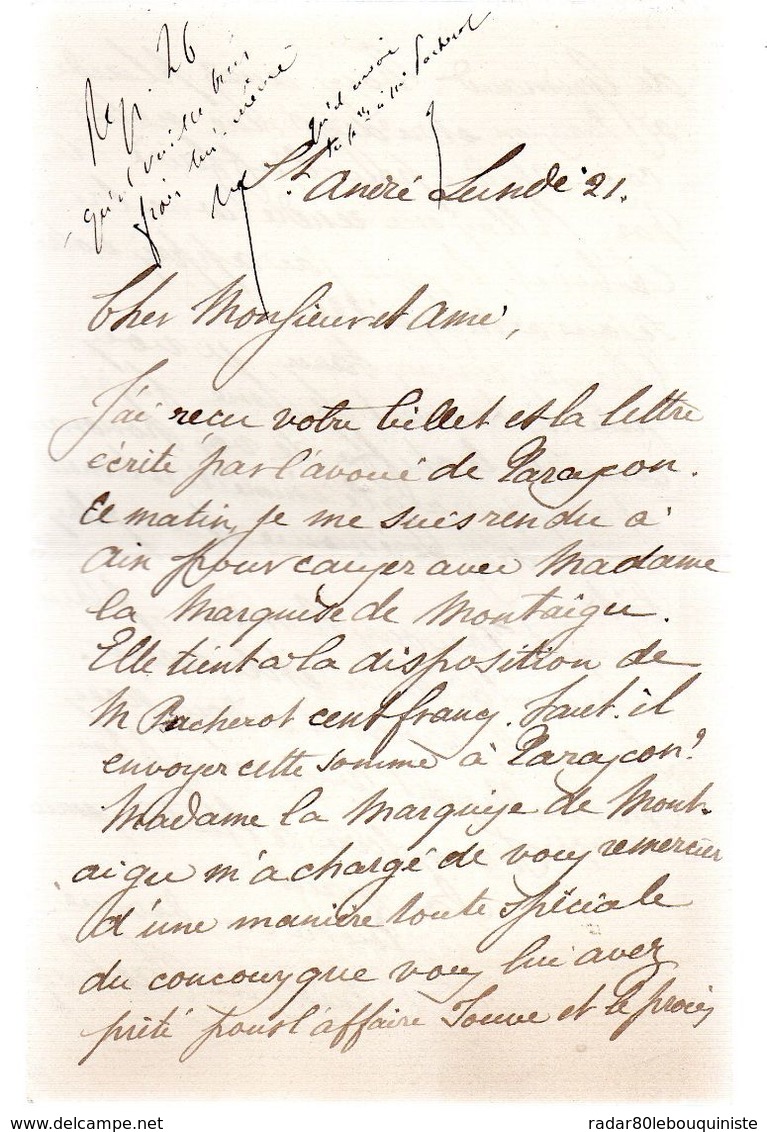 Rep. 26
qu'il veuille bien
frais lui-même
qu'il envoie
à Mr Pacherot
St André Lundi 21.
Cher Monsieur et Ami,
J'ai reçu votre billet et la lettre
écrite par l'avoué de Tarascon.
Ce matin, je me suis rendu à
Ain pour causer avec Madame
la Marquise de Montaigu.
Elle tient à la disposition de
M Pacherot cent francs. Faut-il
envoyer cette somme à Tarascon?
Madame la Marquise de Mont-
aigu m'a chargé de vous remercier
d'une manière toute spéciale
du concours que vous lui avez
prêté pour l'affaire Jouve et le procès
delcampe.net
radar80lebouquiniste